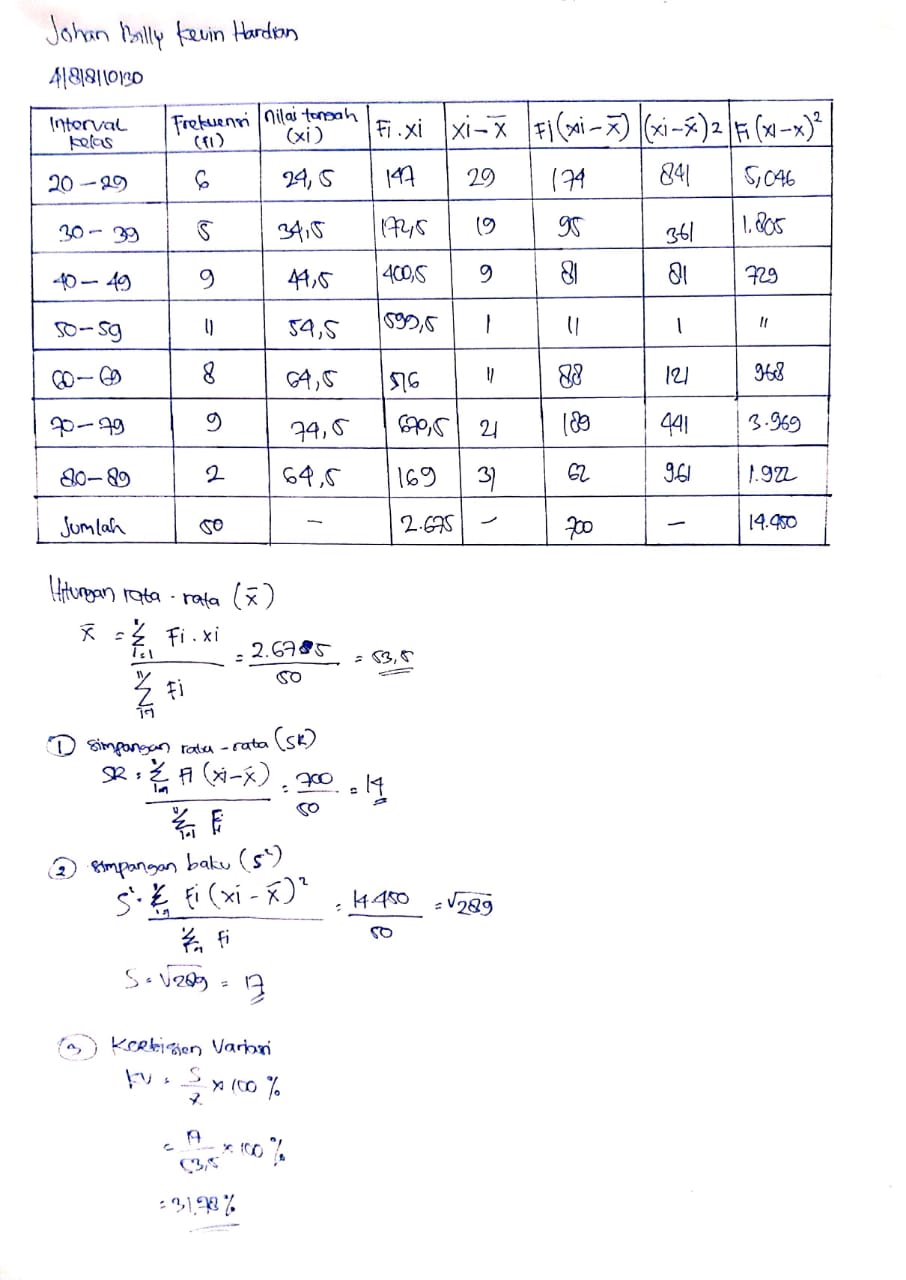 Johan Billy Kevin Hardian
41818110130
Interval kelas | Frekuensi (fi) | Nilai tengah (xi) | Fi . xi | xi – x̄ | Fi (xi – x̄) | (xi – x̄) 2 | Fi (xi – x)²
20 – 29 | 6 | 24,5 | 147 | 29 | 174 | 841 | 5,046
30 – 39 | 5 | 34,5 | 172,5 | 19 | 95 | 361 | 1.805
40 – 49 | 9 | 44,5 | 400,5 | 9 | 81 | 81 | 729
50 – 59 | 11 | 54,5 | 599,5 | 1 | 11 | 1 | 11
60 – 69 | 8 | 64,5 | 516 | 11 | 88 | 121 | 968
70 – 79 | 9 | 74,5 | 670,5 | 21 | 189 | 441 | 3.969
80 – 89 | 2 | 64,5 | 169 | 31 | 62 | 961 | 1.922
Jumlah | 50 | – | 2.675 | – | 700 | – | 14.450
Hitungan rata - rata (x̄)
x̄ = Σ Fi . xi / Σ Fi = 2.675 / 50 = 53,5
① Simpangan rata – rata (SR)
SR = Σ Fi (xi – x̄) / Σ Fi = 700 / 50 = 14
② Simpangan baku (s²)
S² = Σ Fi (xi – x̄)² / Σ Fi = 14.450 / 50 = √289
S = √289 = 17
③ Koefisien Variasi
KV = S / x̄ × 100 %
= 17 / 53,5 × 100 %
= 31,78 %